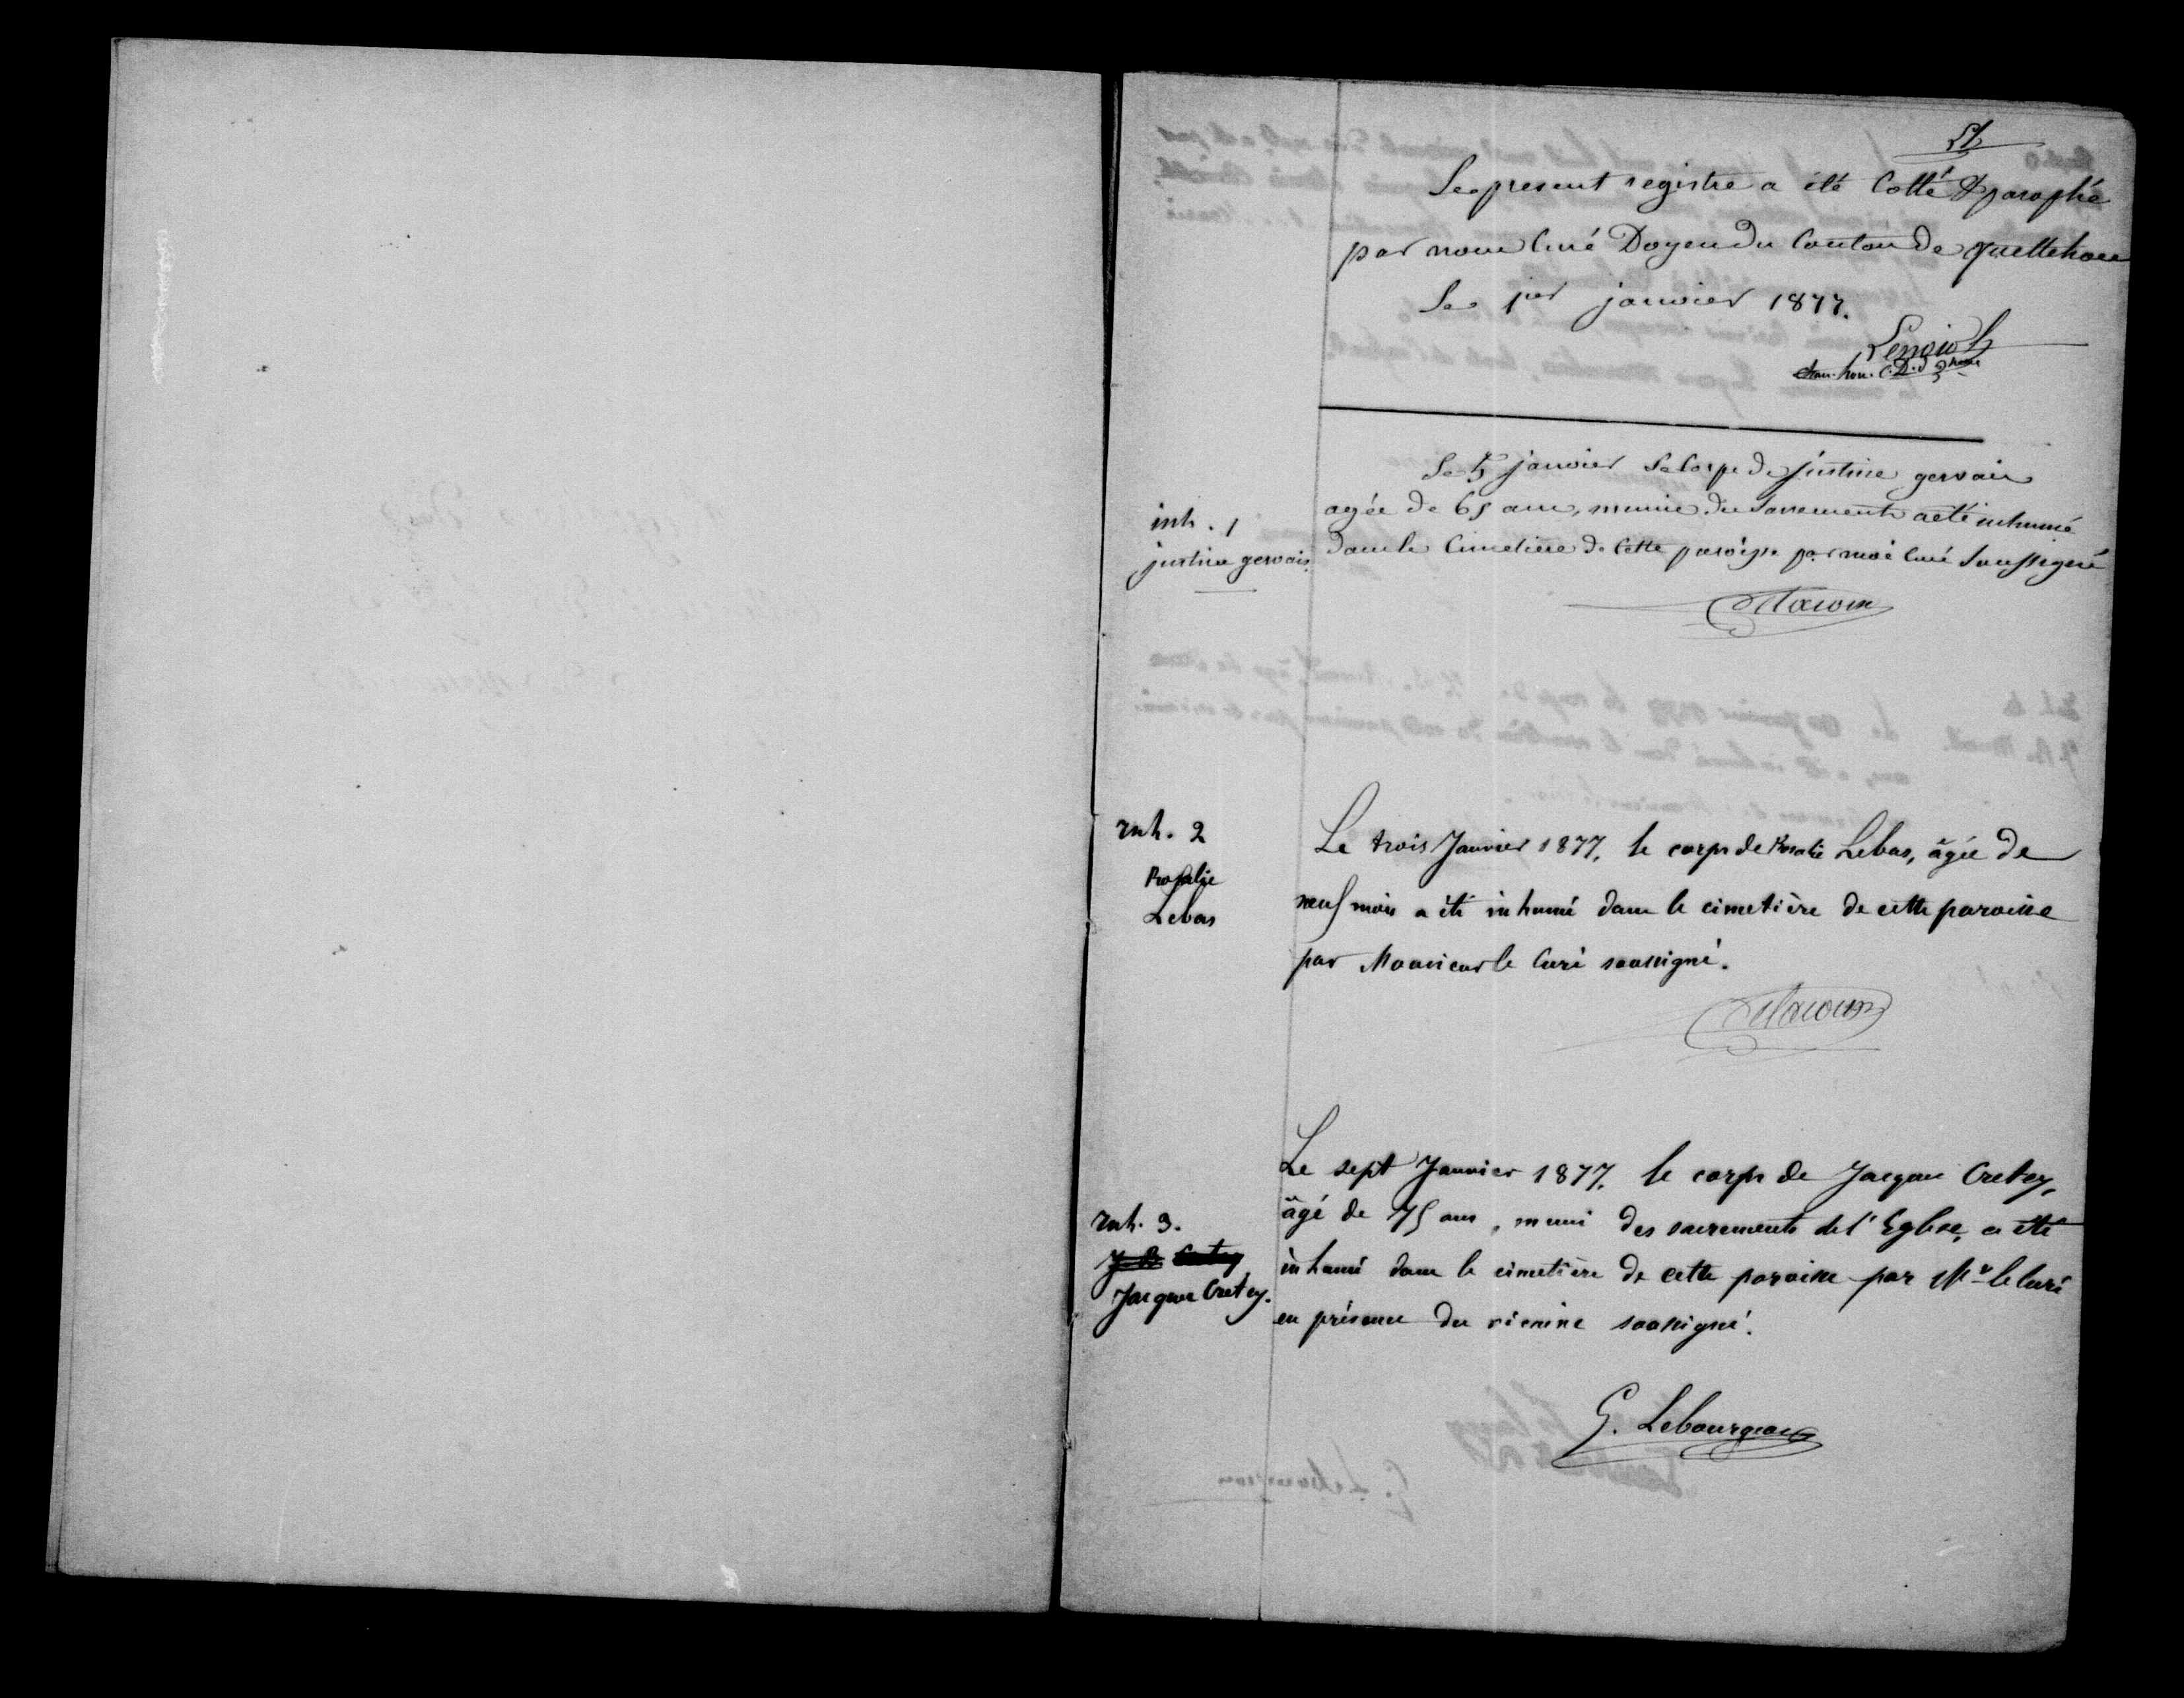 Le present registre a été Cotté & paraphé
par nous Curé Doyen du Canton de quettehou
Le 1er janvier 1877.
Lenoir
chan. hon. C. D. d
inh. 1
justine gervais.
Le 5 janvier Le Corps de justine gervais
agée de 65 ans, munie des Sacrements a été inhumé
dans le Cimetière de Cette paroisse par moi Curé Soussigné
inh. 2
Rosalie
Lebas
Le trois Janvier 1877, le corps de Rosalie Lebas, âgée de
neuf mois a été inhumé dans le cimetière de cette paroisse
par Monsieur le Curé soussigné.
inh. 3.
Jacques Cretey.
Le sept Janvier 1877, le corps de Jacques Cretey,
âgé de 75 ans, muni des sacrements de l'Eglise, a été
inhumé dans le cimetière de cette paroisse par Mr le Curé
en présence du vicaire soussigné.
G. Lebourgeois